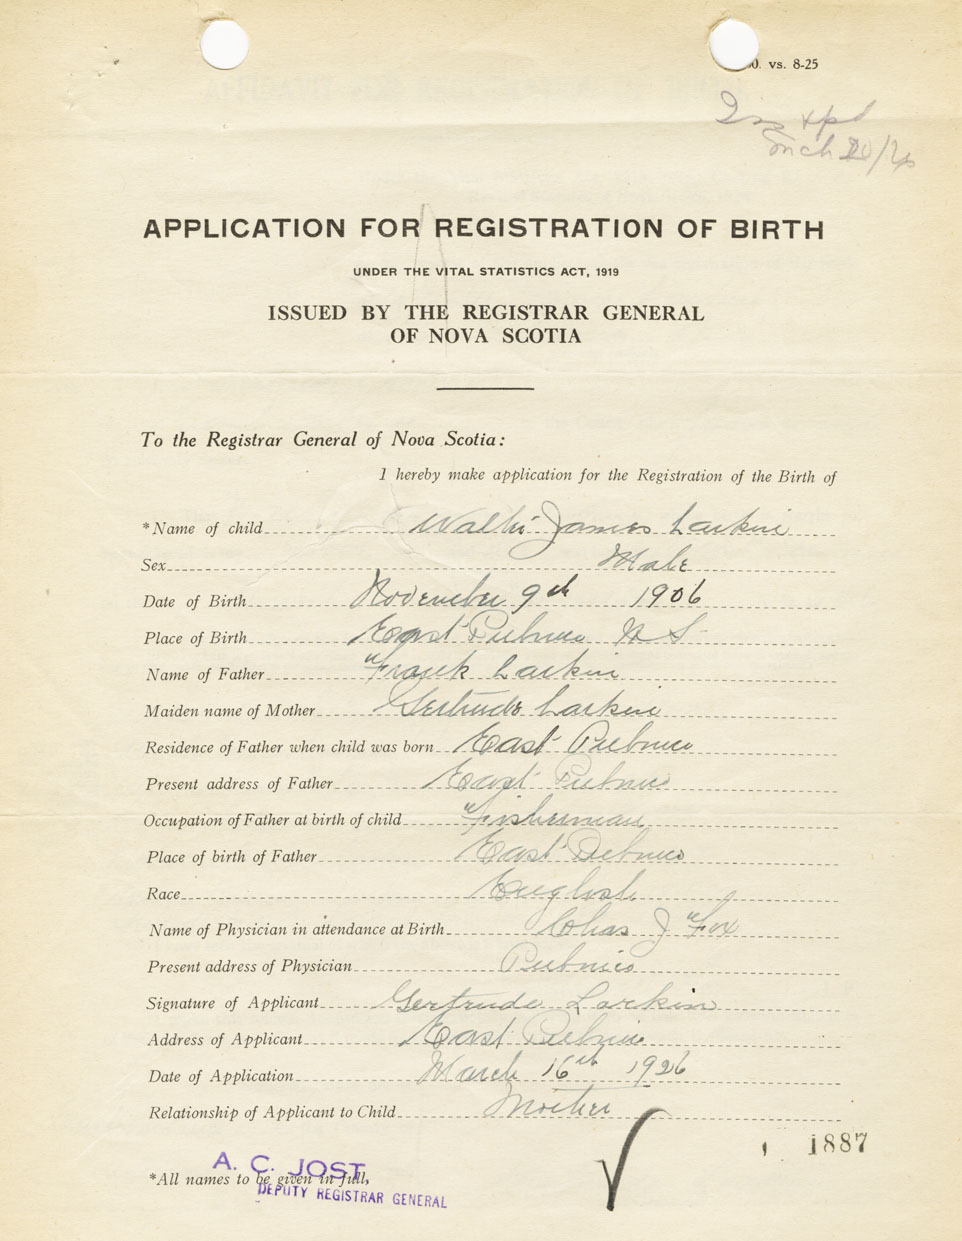 0. vs. 8-25
APPLICATION FOR REGISTRATION OF BIRTH
UNDER THE VITAL STATISTICS ACT, 1919
ISSUED BY THE REGISTRAR GENERAL
OF NOVA SCOTIA
To the Registrar General of Nova Scotia:
I hereby make application for the Registration of the Birth of
*Name of child Walter James Larkin
Sex Male
Date of Birth November 9th 1906
Place of Birth East Pubnico N S
Name of Father Frank Larkin
Maiden name of Mother Gertrude Larkin
Residence of Father when child was born East Pubnico
Present address of Father East Pubnico
Occupation of Father at birth of child Fisherman
Place of birth of Father East Pubnico
Race English
Name of Physician in attendance at Birth Chas J Fox
Present address of Physician Pubnico
Signature of Applicant Gertrude Larkin
Address of Applicant East Pubnico
Date of Application March 16th 1926
Relationship of Applicant to Child Mother
1887
*All names to be given in full,
A. C. JOST,
DEPUTY REGISTRAR GENERAL